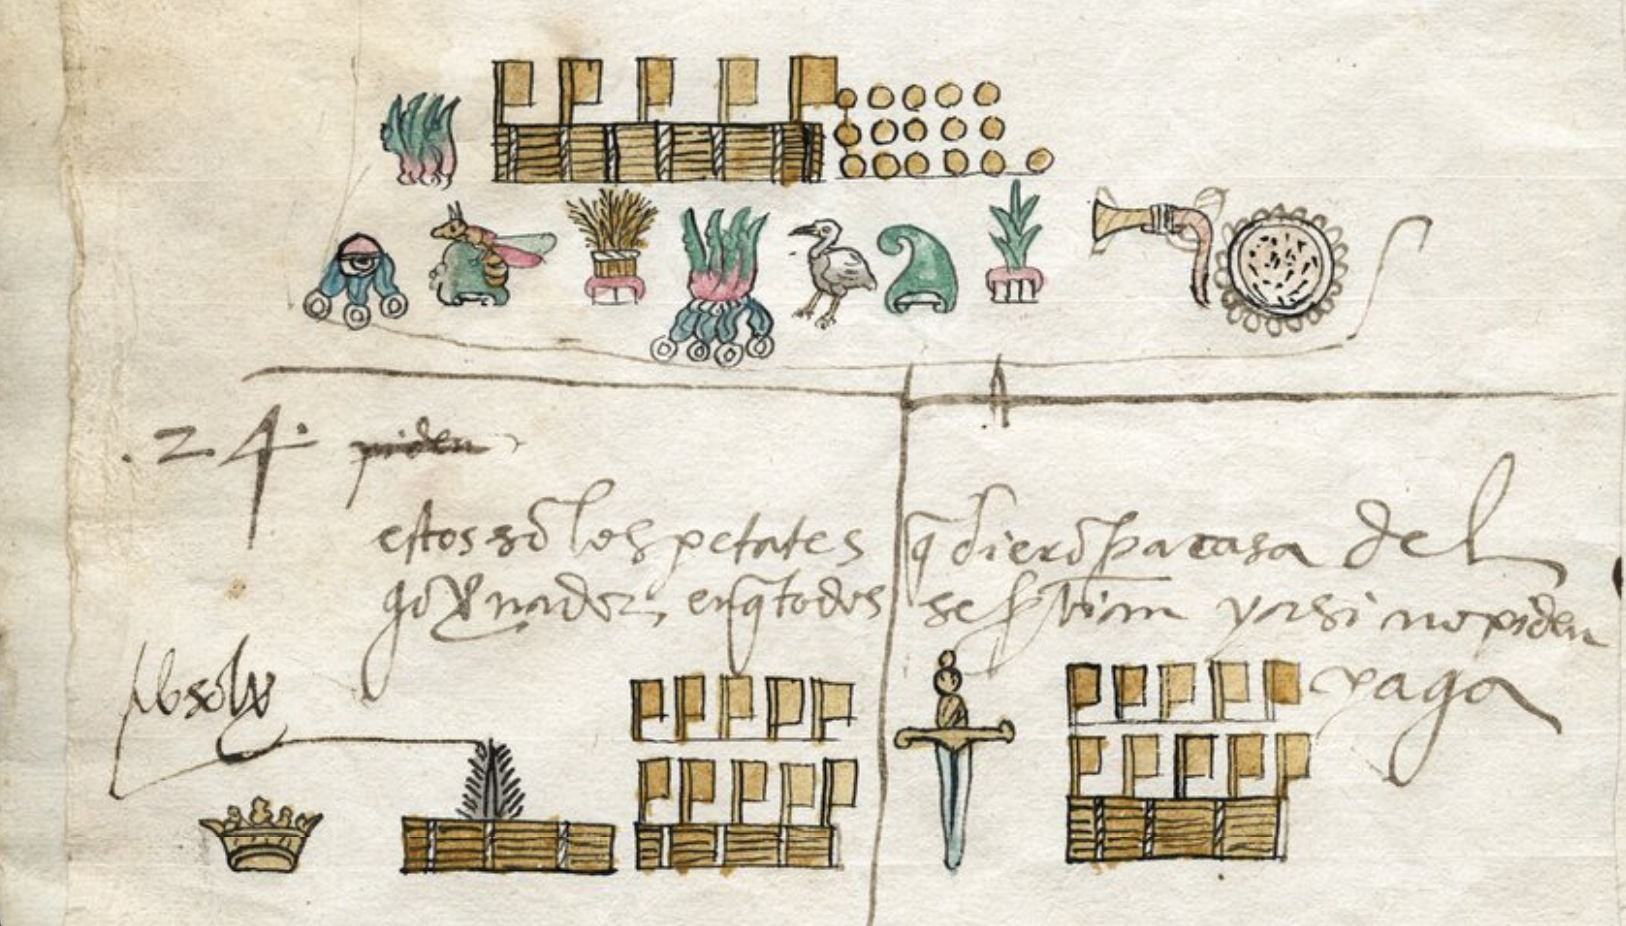 .24. piden
estos sō los petates q̄ dierō pa casa del
gou̅nador, en q̄ todos se siruiā y asi no piden
paga